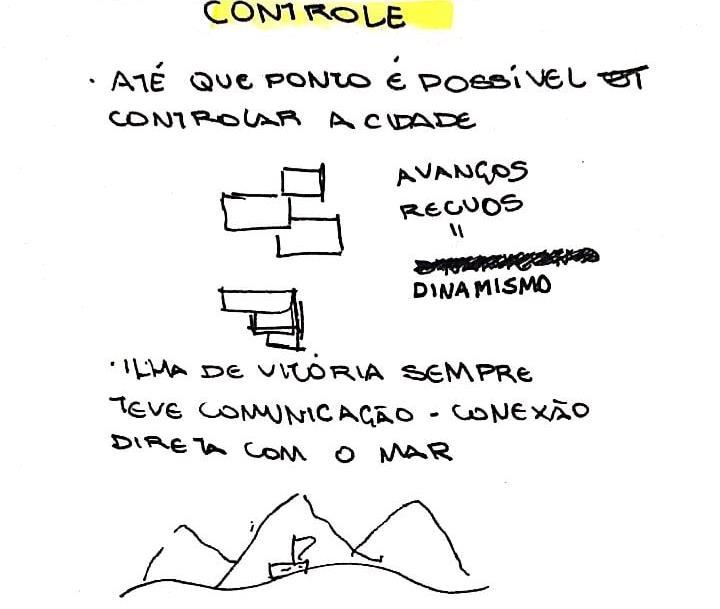 CONTROLE
· ATÉ QUE PONTO É POSSÍVEL
CONTROLAR A CIDADE
AVANÇOS
RECUOS
=
DINAMISMO
· ILHA DE VITÓRIA SEMPRE
TEVE COMUNICAÇÃO - CONEXÃO
DIRETA COM O MAR